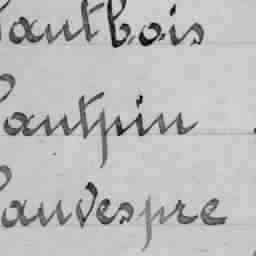 autbois
autpin
auvespre